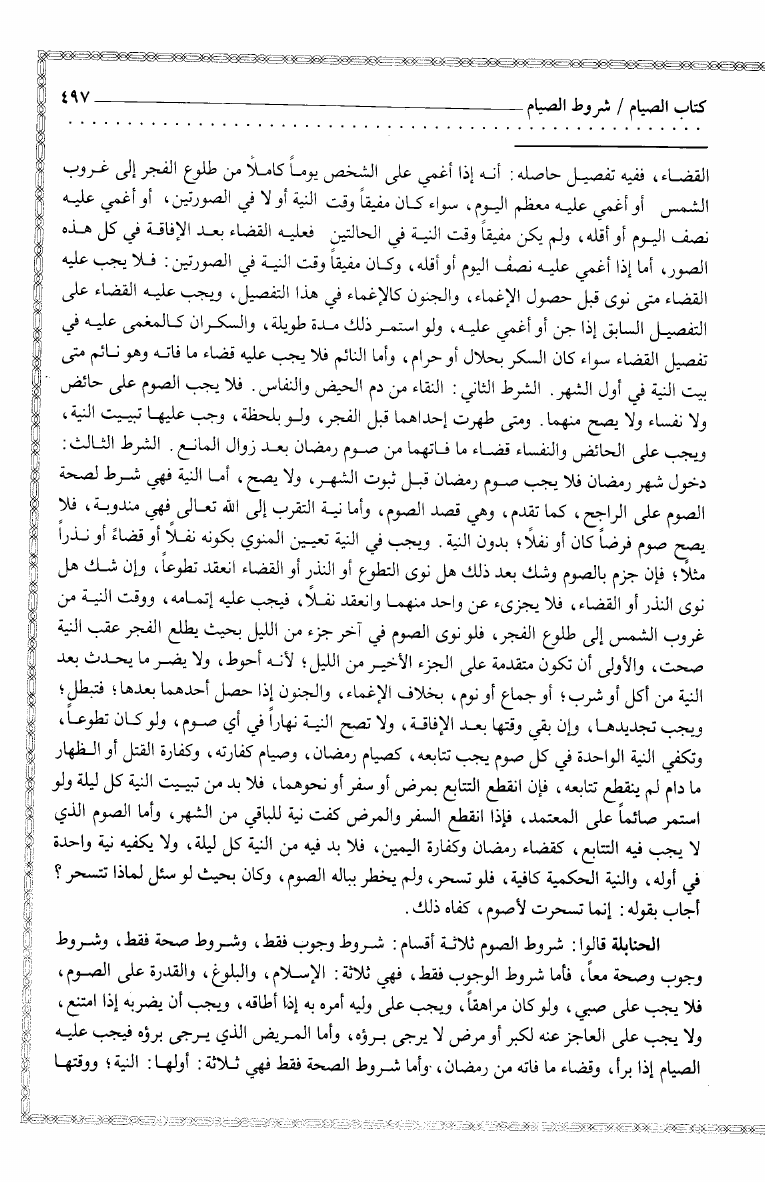 كتاب الصيام / شروط الصيام ٤٩٧
القضاء، ففيه تفصيل حاصله: أنه إذا أغمي على الشخص يوماً كاملاً من طلوع الفجر إلى غروب
الشمس أو أغمي عليه معظم اليوم، سواء كان مفيقاً وقت النية أو لا في الصورتين، أو أغمي عليه
نصف اليوم أو أقله، ولم يكن مفيقاً وقت النية في الحالتين فعليه القضاء بعد الإفاقة في كل هذه
الصور، أما إذا أغمي عليه نصف اليوم أو أقله، وكان مفيقاً وقت النية في الصورتين: فلا يجب عليه
القضاء متى نوى قبل حصول الإغماء، والجنون كالإغماء في هذا التفصيل، ويجب عليه القضاء على
التفصيل السابق إذا جن أو أغمي عليه، ولو استمر ذلك مدة طويلة، والسكران كالمغمى عليه في
تفصيل القضاء سواء كان السكر بحلال أو حرام، وأما النائم فلا يجب عليه قضاء ما فاته وهو نائم متى
بيت النية في أول الشهر. الشرط الثاني: النقاء من دم الحيض والنفاس. فلا يجب الصوم على حائض
ولا نفساء ولا يصح منهما. ومتى طهرت إحداهما قبل الفجر، ولو بلحظة، وجب عليها تبييت النية،
ويجب على الحائض والنفساء قضاء ما فاتهما من صوم رمضان بعد زوال المانع. الشرط الثالث:
دخول شهر رمضان فلا يجب صوم رمضان قبل ثبوت الشهر، ولا يصح، أما النية فهي شرط لصحة
الصوم على الراجح، كما تقدم، وهي قصد الصوم، وأما نية التقرب إلى الله تعالى فهي مندوبة، فلا
يصح صوم فرضاً كان أو نفلاً؛ بدون النية. ويجب في النية تعيين المنوي بكونه نفلاً أو قضاءً أو نذراً
مثلاً؛ فإن جزم بالصوم وشك بعد ذلك هل نوى التطوع أو النذر أو القضاء انعقد تطوعاً، وإن شك هل
نوى النذر أو القضاء، فلا يجزىء عن واحد منهما وانعقد نفلاً، فيجب عليه إتمامه، ووقت النية من
غروب الشمس إلى طلوع الفجر، فلو نوى الصوم في آخر جزء من الليل بحيث يطلع الفجر عقب النية
صحت، والأولى أن تكون متقدمة على الجزء الأخير من الليل؛ لأنه أحوط، ولا يضر ما يحدث بعد
النية من أكل أو شرب؛ أو جماع أو نوم، بخلاف الإغماء، والجنون إذا حصل أحدهما بعدها؛ فتبطل؛
ويجب تجديدها، وإن بقي وقتها بعد الإفاقة، ولا تصح النية نهاراً في أي صوم، ولو كان تطوعاً،
وتكفي النية الواحدة في كل صوم يجب تتابعه، كصيام رمضان، وصيام كفارته، وكفارة القتل أو الظهار
ما دام لم ينقطع تتابعه، فإن انقطع التتابع بمرض أو سفر أو نحوهما، فلا بد من تبييت النية كل ليلة ولو
استمر صائماً على المعتمد، فإذا انقطع السفر والمرض كفت نية للباقي من الشهر، وأما الصوم الذي
لا يجب فيه التتابع، كقضاء رمضان وكفارة اليمين، فلا بد فيه من النية كل ليلة، ولا يكفيه نية واحدة
في أوله، والنية الحكمية كافية، فلو تسحر، ولم يخطر بباله الصوم، وكان بحيث لو سئل لماذا تتسحر؟
أجاب بقوله: إنما تسحرت لأصوم، كفاه ذلك.
الحنابلة قالوا: شروط الصوم ثلاثة أقسام: شروط وجوب فقط، وشروط صحة فقط، وشروط
وجوب وصحة معاً، فأما شروط الوجوب فقط، فهي ثلاثة: الإسلام، والبلوغ، والقدرة على الصوم،
فلا يجب على صبي، ولو كان مراهقاً، ويجب على وليه أمره به إذا أطاقه، ويجب أن يضربه إذا امتنع،
ولا يجب على العاجز عنه لكبر أو مرض لا يرجى برؤه، وأما المريض الذي يرجى برؤه فيجب عليه
الصيام إذا برأ، وقضاء ما فاته من رمضان، وأما شروط الصحة فقط فهي ثلاثة: أولها: النية؛ ووقتها